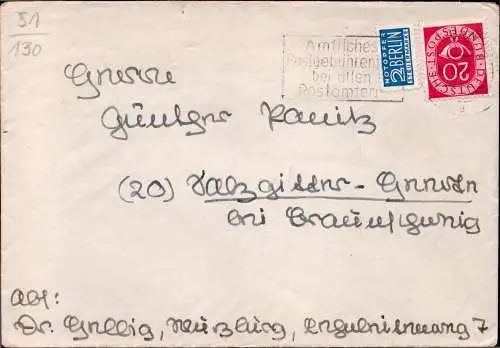 51
130
Amtliches
Postgebühren
bei allen
Postämtern
NOTOPFER
2 BERLIN
STEUERMARKE
DEUTSCHE BUNDESPOST
20
Herrn
Günther Panitz
(20) Salzgitter-
bei Braunschweig
Abs:
Dr. Würzburg, 7